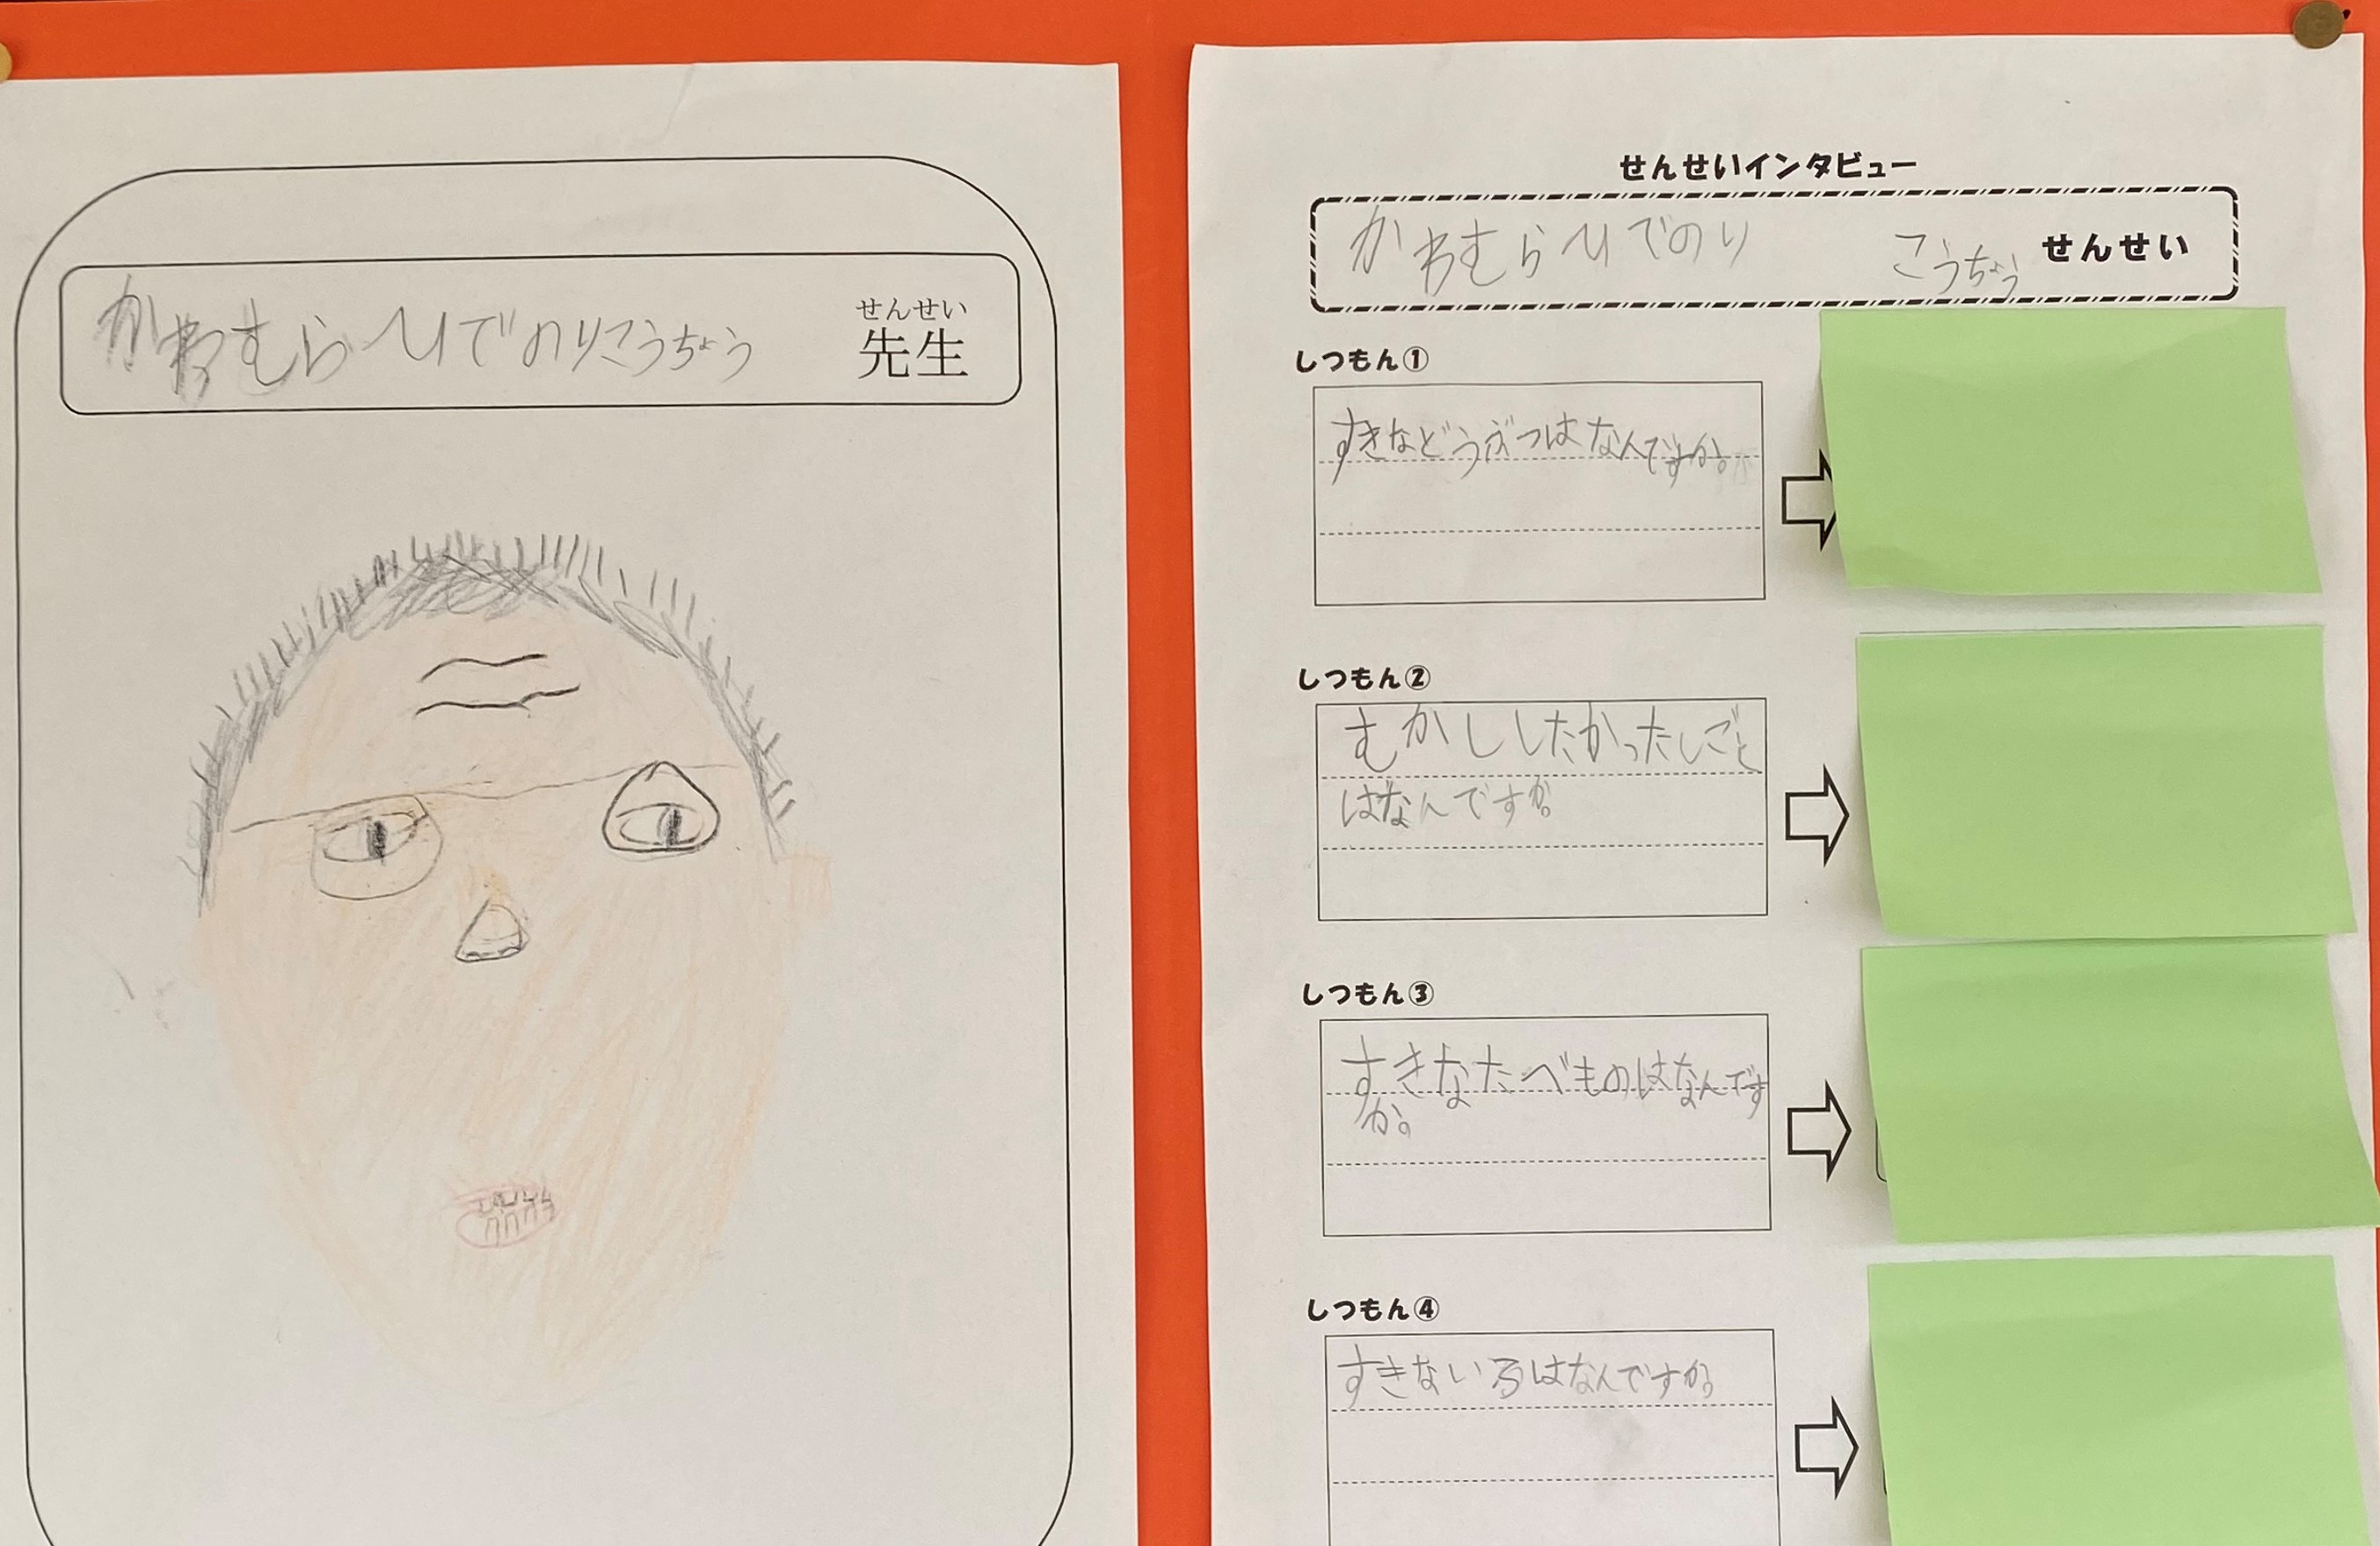 かわむらひでのりこうちょう
せんせい
先生
せんせいインタビュー
かわむらひでのり こうちょう せんせい
しつもん①
すきなどうぶつはなんですか。
しつもん②
むかししたかったしごと
はなんですか。
しつもん③
すきなたべものはなんです
か。
しつもん④
すきないろはなんですか。